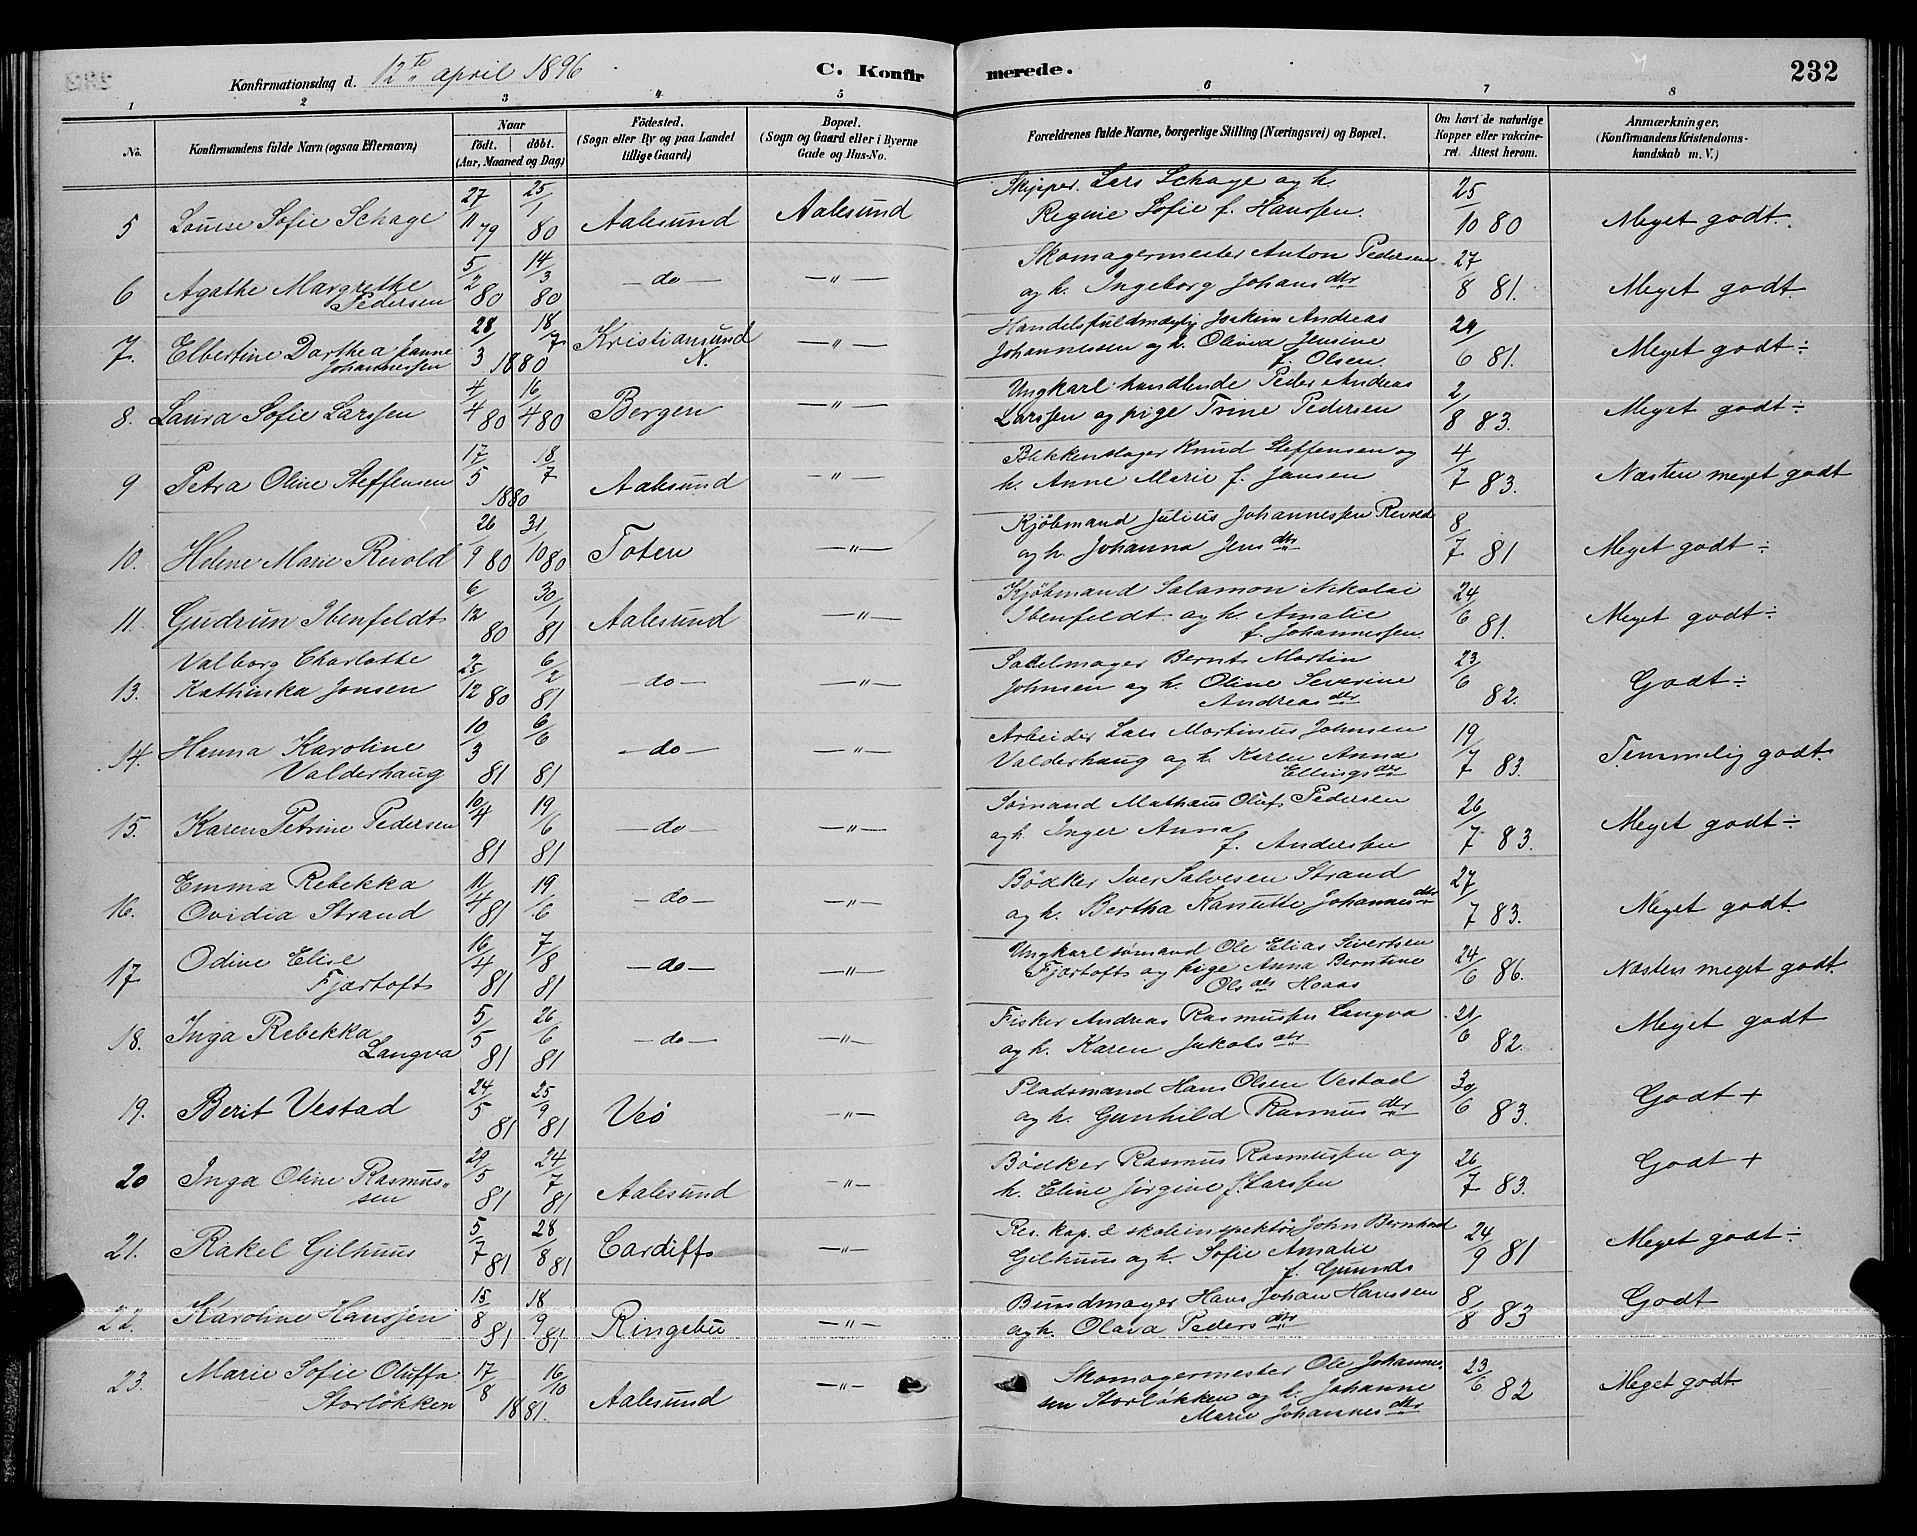 Konfirmationsdag d. 12te april 1896 C. Konfirmerede. 232
1 2 3 4 5 6 7 8
No. Konfirmandens fulde Navn (ogsaa Efternavn) Naar født. døbt. (Aar, Maaned og Dag) Fødested. (Sogn eller By og paa Landet tillige Gaard) Bopæl. (Sogn og Gaard eller i Byerne Gade og Hus-No. Forældrenes fulde Navne, borgerlige Stilling (Næringsvei) og Bopæl. Om havt de naturlige Kopper eller vakcineret. Attest herom. Anmærkninger. (Konfirmandens Kristendomskundskab m. V.)
5 Louise Sofie Schage 27/11 79 25/1 80 Aalesund Aalesund Skipper Lars Schage og h.
Regine Sofie f. Hanssen. 25/10 80 Meget godt÷
6 Agathe Margrethe Pedersen 5/2 80 14/3 80 —do— —"— Skomagermester Anton Pedersen
og h. Ingeborg Johansdtr 27/8 81. Meget godt
7. Elbertine Darthea Janne Johannessen 28/3 18/7 1880 Kristiansund N. —"— Handelsfuldmægtig Joakim Andreas
Johannessen og h. Olivia Jensine
f. Olsen. 29/6 81. Meget godt÷
8. Laura Sofie Larssen 4/4 80 16/4 80 Bergen —"— Ungkarl handlende Peder Andreas
Larssen og pige Trine Pedersen 2/8 83. Meget godt÷
9 Petra Oline Steffensen 17/5 18/7 1880 Aalesund —"— Blikkenslager Knud Steffensen og
h. Anne Marie f. Jansen 4/7 83. Næsten meget godt
10. Helene Marie Revold 26/9 80 31/10 80 Toten —"— Kjøbmand Julius Johannessen Revold
og h. Johanna Jensdtr 8/7 81 Meget godt÷
11. Gudrun Ibenfeldt 6/12 80 30/1 81 Aalesund —"— Kjøbmand Salamon Nikolai
Ibenfeldt og h. Amalie
f. Johannessen. 24/6 81. Meget godt÷
13. Valborg Charlotte
Kathinka Jonsen 25/12 80 6/2 81 —do— —"— Sadelmager Bernt Martin
Johnsen og h. Oline Severine
Andreasdtr 23/6 82. Godt÷
14. Hanna Karoline
Valderhaug 10/3 81 6/6 81 —do— —"— Arbeider Lars Martinus Johnsen
Valderhaug og h. Karen Anna
Ellingsdtr 19/7 83. Temmelig godt.
15. Karen Petrine Pedersen 10/4 81 19/6 81 —do— —"— Sømand Mathæus Oluf Pedersen
og h. Inger Anna
f. Anderssen 26/7 83. Meget godt÷
16. Emma Rebekka
Ovidia Strand 11/4 81 19/6 —do— —"— Bødker Iver Salvesen Strand
og h. Bertha Kanutte Johannesdtr 27/7 83. Meget godt.
17 Odine Elise
Fjærtoft 16/4 81 7/8 81 —do— —"— Ungkarl sømand Ole Elias Sivertsen
Fjørtoft og pige Anna Berntine
Olsdtr Hoaas 24/6 86. Næsten meget godt.
18. Inga Rebekka
Langva 5/5 81 26/6 81 —do— —"— Fisker Andreas Rasmussen Langva
og h. Karen Jakobsdtr 21/6 82. Meget godt
19. Berit Vestad 24/5 81 25/9 81 Veø —"— Pladsmand Hans Olsen Vestad
og h. Gunhild Rasmusdtr 30/6 83. Godt +
20 Inga Oline Rasmussen 29/5 81 24/7 81 Aalesund —"— Bødker Rasmus Rasmussen og
h. Eline Jørgine f. Larssen 26/7 83. Godt +
21. Rakel Gilhuus 5/7 81 28/8 81 Cardiff —"— Res. kap. & skoleinspektør John Bernhard
Gilhuus og h. Sofie Amalie
f. 24/9 81 Meget godt÷
22. Karoline Hanssen 15/8 81 18/9 81 Ringebu —"— Bundmager Hans Johan Hanssen
og h. Olava Pedersdtr 8/8 83 Godt
23. Marie Sofie Oluffa
Storløkken 17/8 16/10 1881. Aalesund —"— Skomagermester Ole Johannessen
Storløkken og h. Johanne
Marie Johannesdtr 23/6 82 Meget godt.